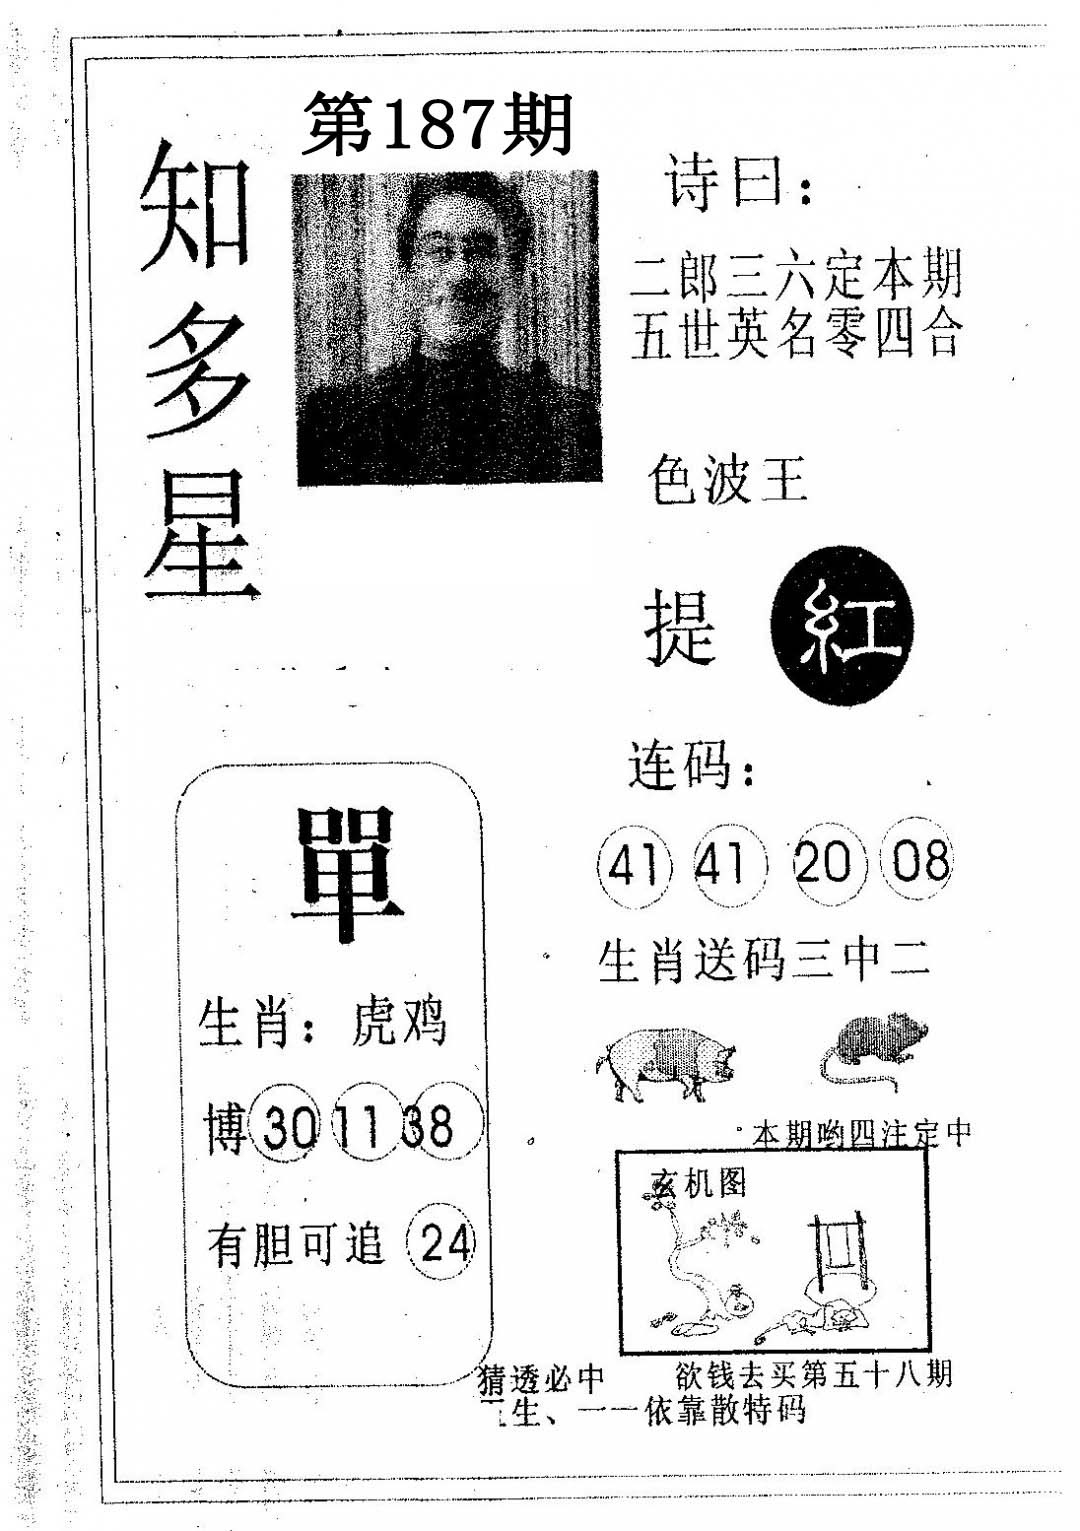 第187期
知多星
诗曰：
二郎三六定本期
五世英名零四合
色波王
提 紅
连码：
41 41 20 08
生肖送码三中二
單
生肖：虎鸡
博 30 11 38
有胆可追 24
本期哟四注定中
玄机图
猜透必中 欲钱去买第五十八期
生、一一依靠散特码